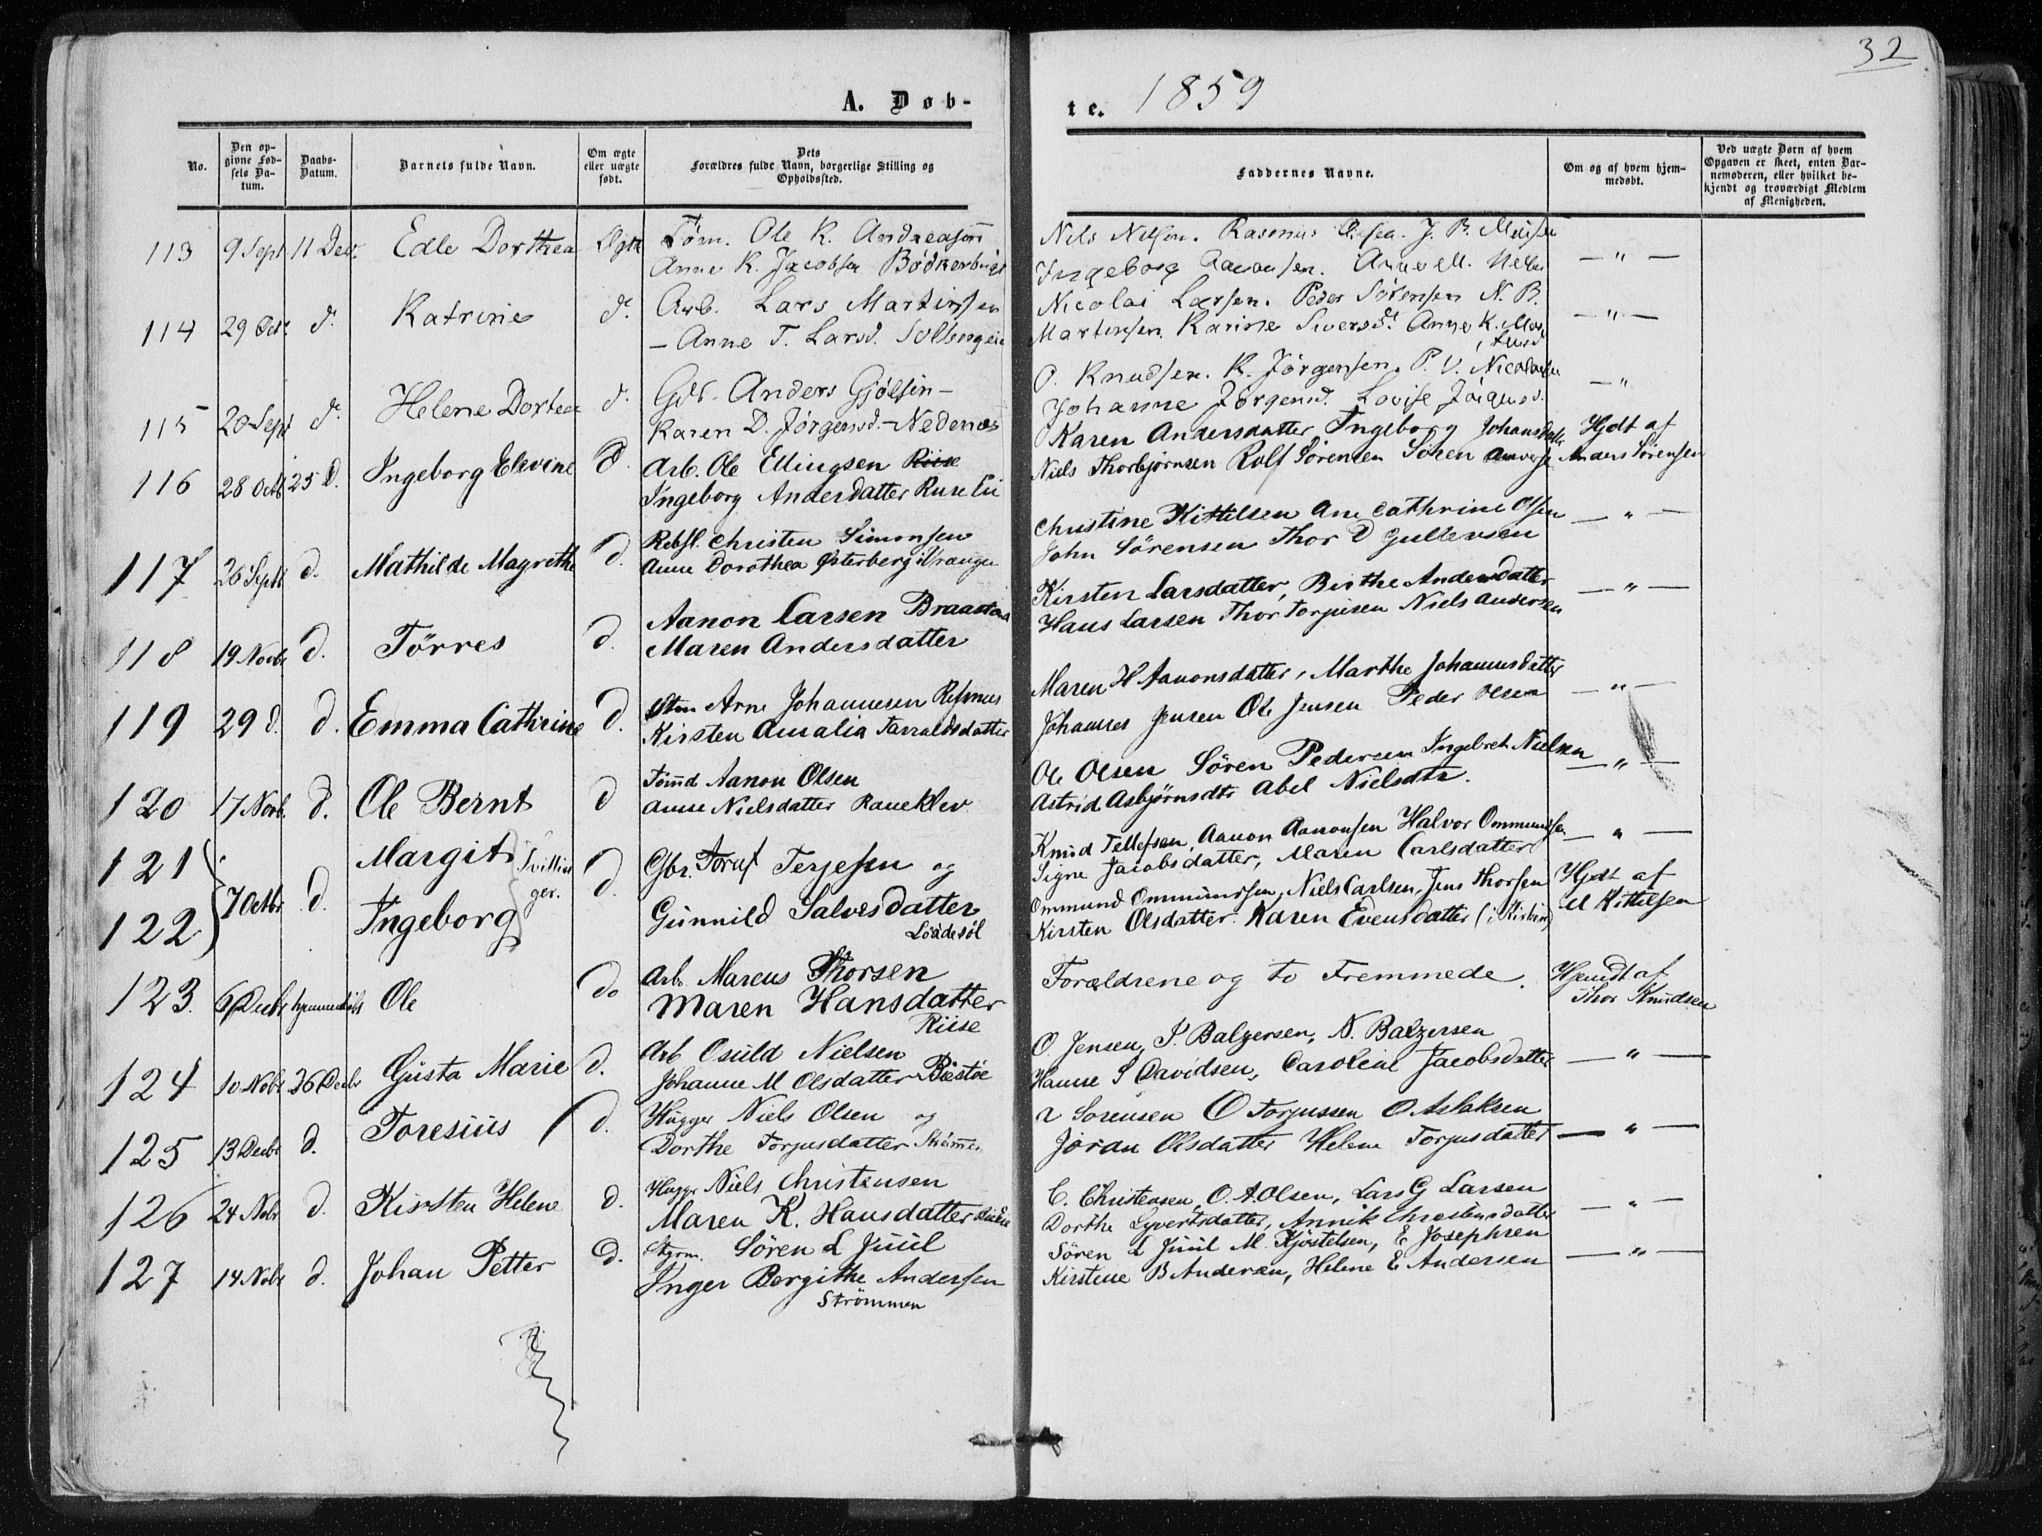 32
A. Døb-
te. 1859
No.
Den op-
givne Fød-
sels Da-
tum.
Daabs-
Datum.
Barnets fulde Navn.
Om ægte
eller uægte
født.
Dets
Forældres fulde Navn, borgerlige Stilling og
Opholdssted.
Faddernes Navne.
Om og af hvem hjem-
medøbt.
Ved uægte Børn af hvem
Opgaven er skeet, enten Bar-
nemoderen, eller hvilket be-
kjendt og troværdigt Medlem
af Menigheden.
113 9 Sept 11 Dec. Edle Dorthea Ægte Tøm. Ole K. Andreasen
Anne K. Jacobsen
Nils Nilsen. Rasmus J. B.
Ingeborg Anne M.
— " —
114 29 Oct. d. Katrine d. Arb. Lars Martinsen
— Anne T. Larsd.
Nicolai Larsen. Peder Sörensen N. B.
Martinsen. Karine Siversd. Anne K.
— " —
115 20 Sept d. Helene Dortea d. Gdb. Anders Gjølsin —
Karen D. Jørgensd. — Nedenæs
O. Knudsen. K. Jörgensen. P. V. Nicolaisen
Johanne Jörgensd. Lovise Jörgensd.
— "
116 28 Octb 25 D. Ingeborg Elevine D. Arb. Ole Ellingsen Riise
Ingeborg Andersdatter
Karen Andersdatter Ingeborg Johansdatter
Niels Thorbjörnsen Rolf Sörensen Sören
Hjdt af
Anders Sörensen
117 26 Septb d. Mathilde Magrethe d. Rebsl. Christen Simonsen
Anne Dorothea Østerberg
Christine Kittelsen Ane Cathrine Olsen
John Sörensen Thor D Gullevsen
— " —
118 19 Novbr d. Törres d. Aanon Larsen Braastad
Maren Andersdatter
Kirsten Larsdatter, Birthe Andersdatter
Hans Larsen Thor Torjusen Niels Andersen
— " —
119 29 d. d. Emma Cathrine d. Arne Johannesen Refsnes
Kirsten Amalia Tarraldsdatter
Maren H Aanonsdatter, Marthe Johannesdatter
Johannes Jensen Ole Jensen Peder Olsen
— " —
120 17 Novb. d. Ole Bernt d Tömd Aanon Olsen
Anne Nielsdatter Raneklev
Ole Olsen Sören Pedersen Ingebret Nielsen
Astrid Asbjörnsdtr Abel Nielsdtr.
— " —
121 Margit
122 7 Octbr d. Ingeborg
Tvillin
ger. d. Gbr. Toruf Terjesen og
Gunnild Salvesdatter
Löddesöl
Knud Tellefsen, Aanon Aanonsen Halvor Ommundsen
Signe Jacobsdatter, Maren Carlsdatter
— " —
Ommund Ommundsen, Niels Carlsen, Jens Thorsen
Kirsten Olsdatter. Karen Evensdatter
Hjdt af
M Kittelsen
123. 6 Decbr hjemmedöbt Ole do Arb. Marcus Thorsen
Maren Hansdatter
Riise
Forældrene og to Fremmede.
Hjemdt af
Thor Knudsen
124 10 Nobr 26 Decbr Gusta Marie d. Arb Osuld Nielsen
Johanne M Olsdatter Biestöe
O. Jensen, S. Balzersen, N. Balzersen
Hanne S Davidsen, Caroline Jacobsdatter
— " —
125 13 Decbr d. Toresius d. Hugger Niels Olsen og
Dorthe Torjusdatter
Sorensen O Torjussen O Aslaksen
Joran Olsdatter Helene Torjusdatter
— " —
126 24 Nobr d. Kirsten Helene d. Huggr Niels Christensen
Maren K. Hansdatter
C. Christensen, O. A. Olsen, Lars G Larsen
Dorthe Syvertsdatter, Annik Christensdatter
— " —
127 14 Nobr d. Johan Petter d. Styrm. Sören L Juul
Inger Bergithe Andersen
Strömmen
Sören L Juul M. Kjöstelsen, E Josephsen
Kirstene B Andersen, Helene E Andersen
— " —